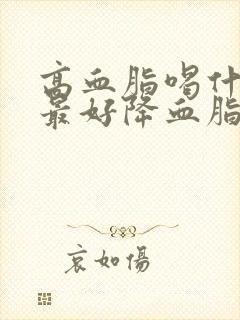 高血脂喝什
最好降血脂
哀如傷